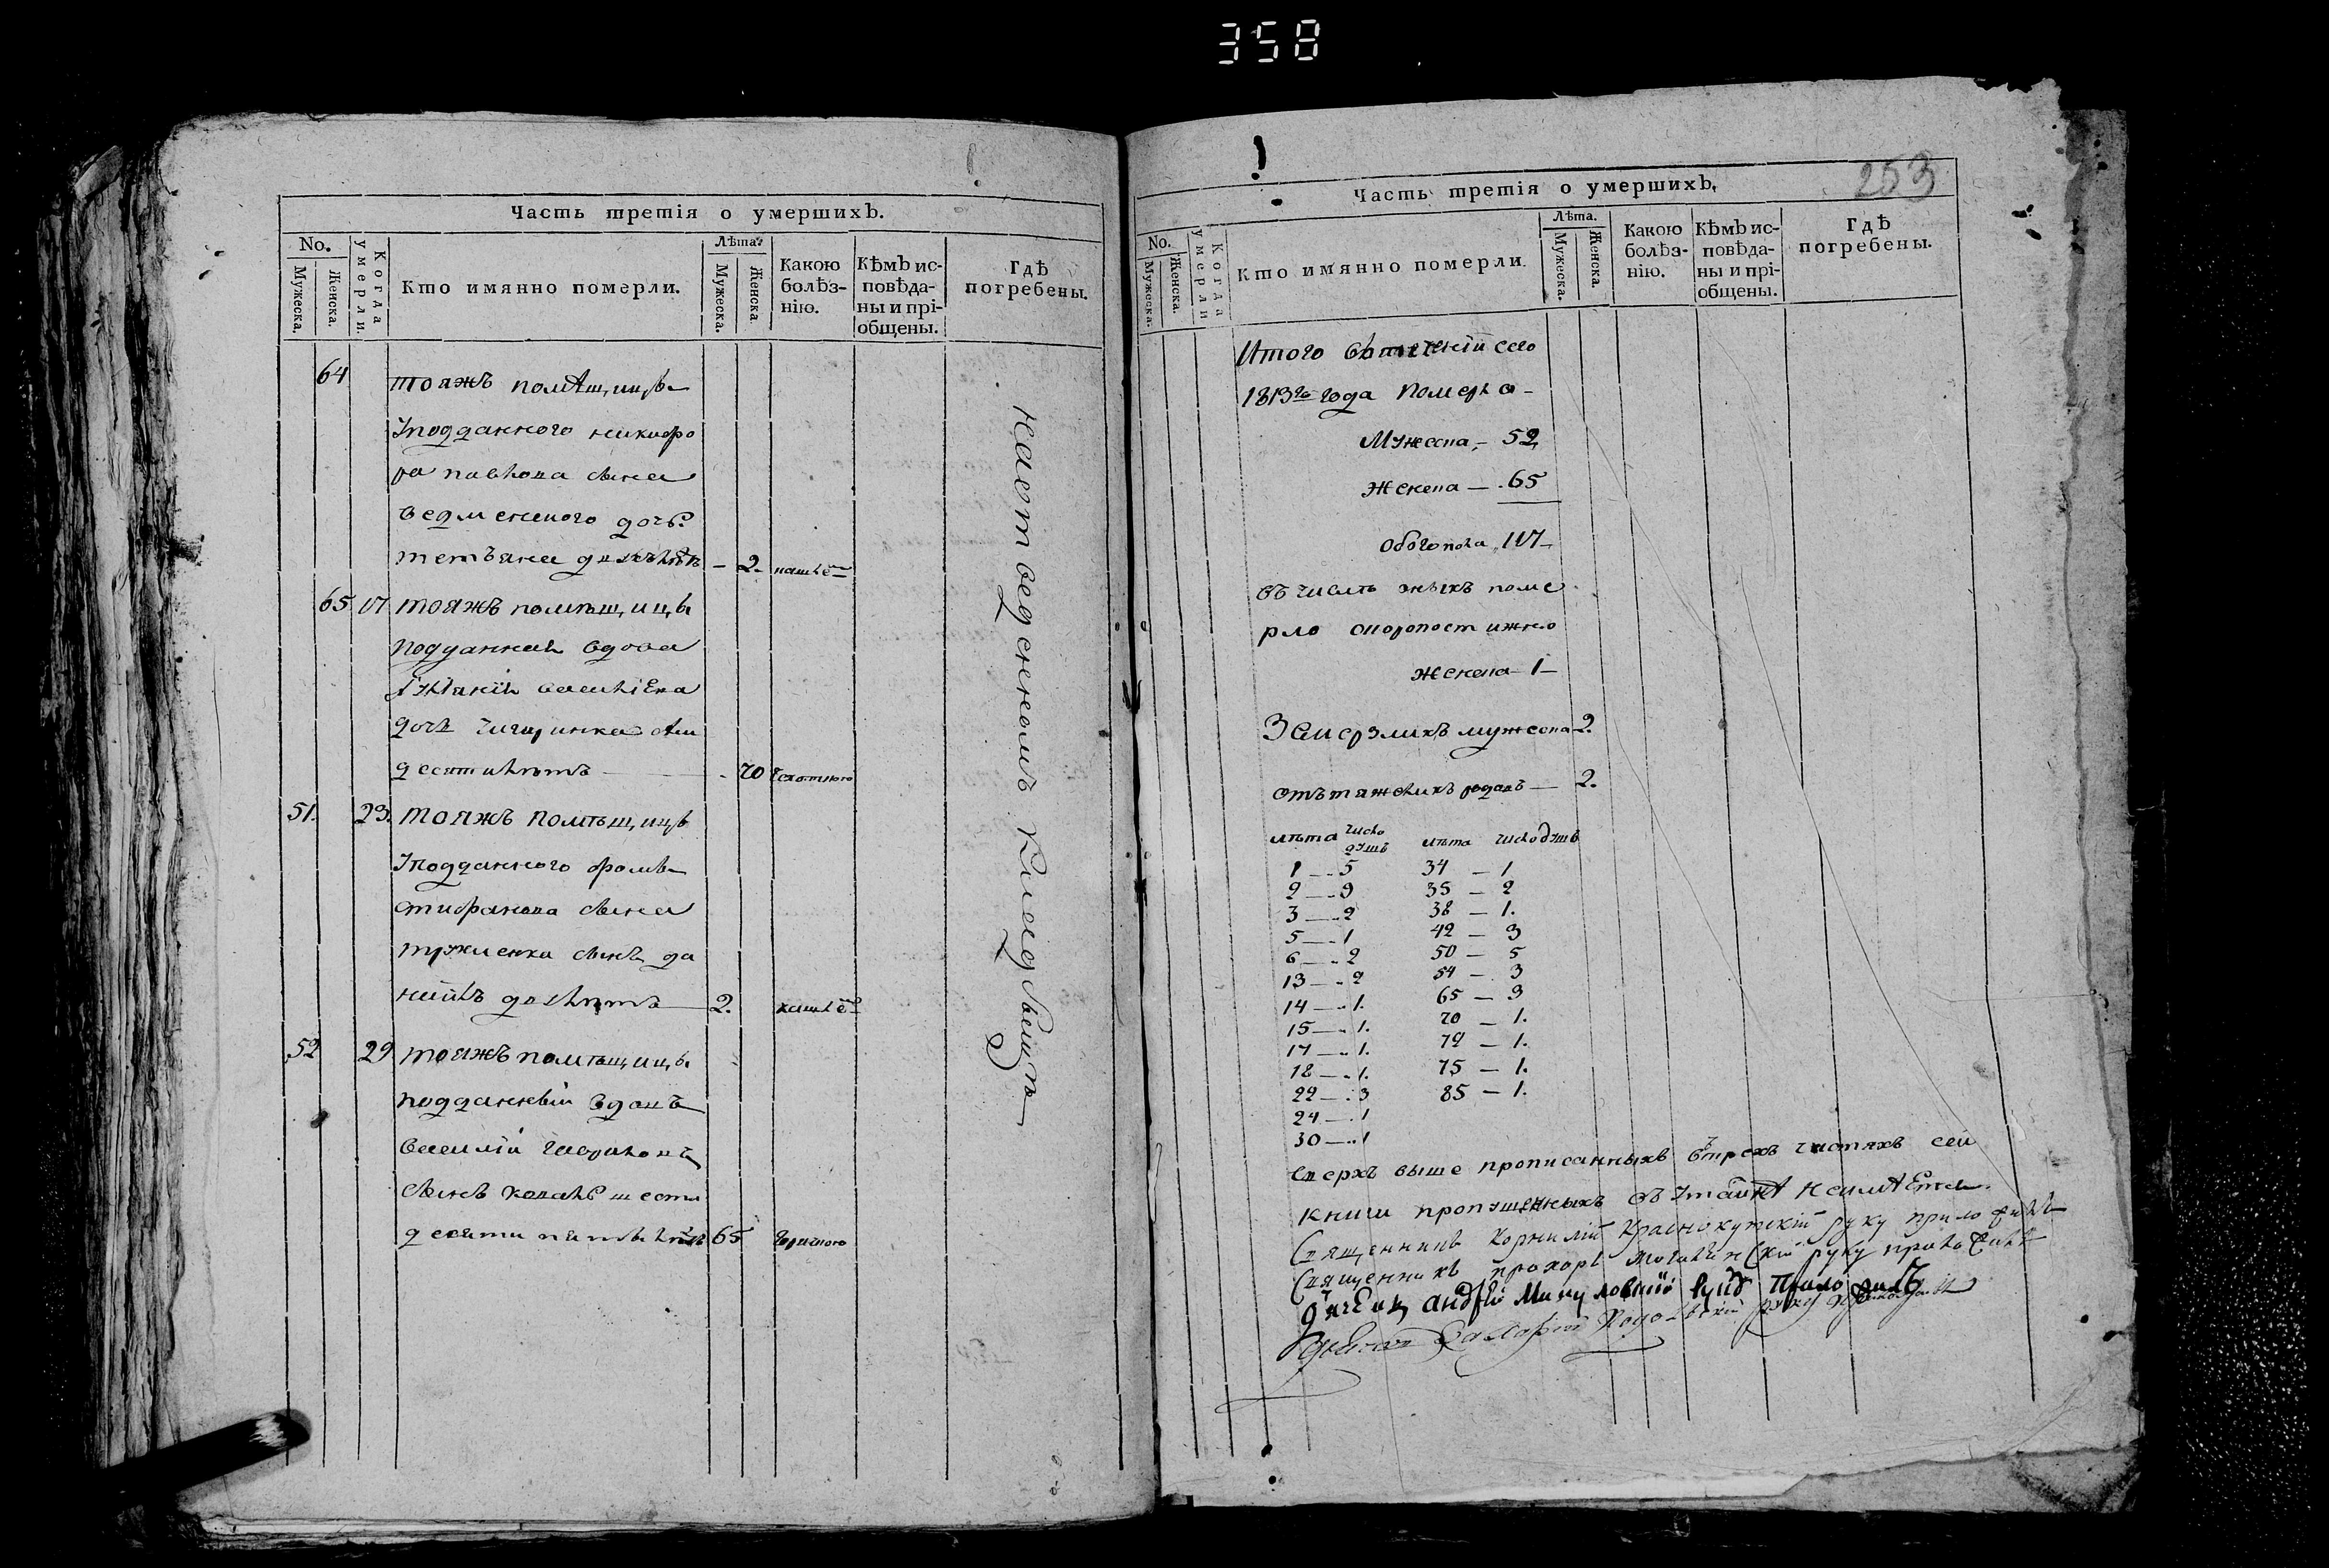 358
Часть третія о умершихъ.
No. Мужеска. Женска.
Когда умерли.
Кто имянно померли.
Лѣта. Мужеска. Женска.
Какою болѣз-
нію.
Кѣмъ ис-
повѣда-
ны и прі-
общены.
Гдѣ
погребены.
64 тояжъ помѣщицы
подданного никифо
ра павлова сына
ведменского дочь
татьяна двухълѣтъ – 2. кашле
65 17 тояжъ помѣщицы
подданная вдова
василіева
дочь чигиринка сем
десятилѣтъ – 70 чахотного
51. 23. тояжъ помѣщицы
подданного фомы
стифанова сына
сынъ да
нійлъ двлѣтъ 2. кашле
52 29 тояжъ помѣщицы
подданный вдовъ
василій гавриловъ
сынъ ковалъ шести
десяти пятьлѣтъ 65
на отведенномъ кладбищѣ
Часть третія о умершихъ.
253
No. Мужеска. Женска.
Когда умерли
Кто имянно померли.
Лѣта. Мужеска. Женска.
Какою болѣз-
нію.
Кѣмъ ис-
повѣда-
ны и прі-
общены.
Гдѣ
погребены.
Итого въ теченіи сего
1813го года померло
Мужеска – 52
Женска – 65
обоего пола 117
въ числѣ оныхъ поме
рло скоропостижно
женска – 1 –
Замерзлихъ мужеска 2.
отътяжолихъ родовъ – 2.
лѣта число душъ лѣта число душъ
1 – 5 34 – 1
2 – 9 35 – 2
3 – 2 38 – 1.
5 – 1 42 – 3
6 – 2 50 – 5
13 – 2 54 – 3
14 – 1. 65 – 3
15 – 1. 70 – 1.
17 – 1. 72 – 1.
18 – 1. 75 – 1.
22 – 3 85 – 1.
24 – 1
30 – 1
Сверхъ выше прописанныхъ втрехъ частяхъ сей
книги пропущенныхъ въ утайкѣ неимѣется
Священникъ Корнилій Краснокутскій руку приложилъ
Священникъ прохоръ Могилянскій руку приложилъ
дячекъ андрей руку приложилъ
руку